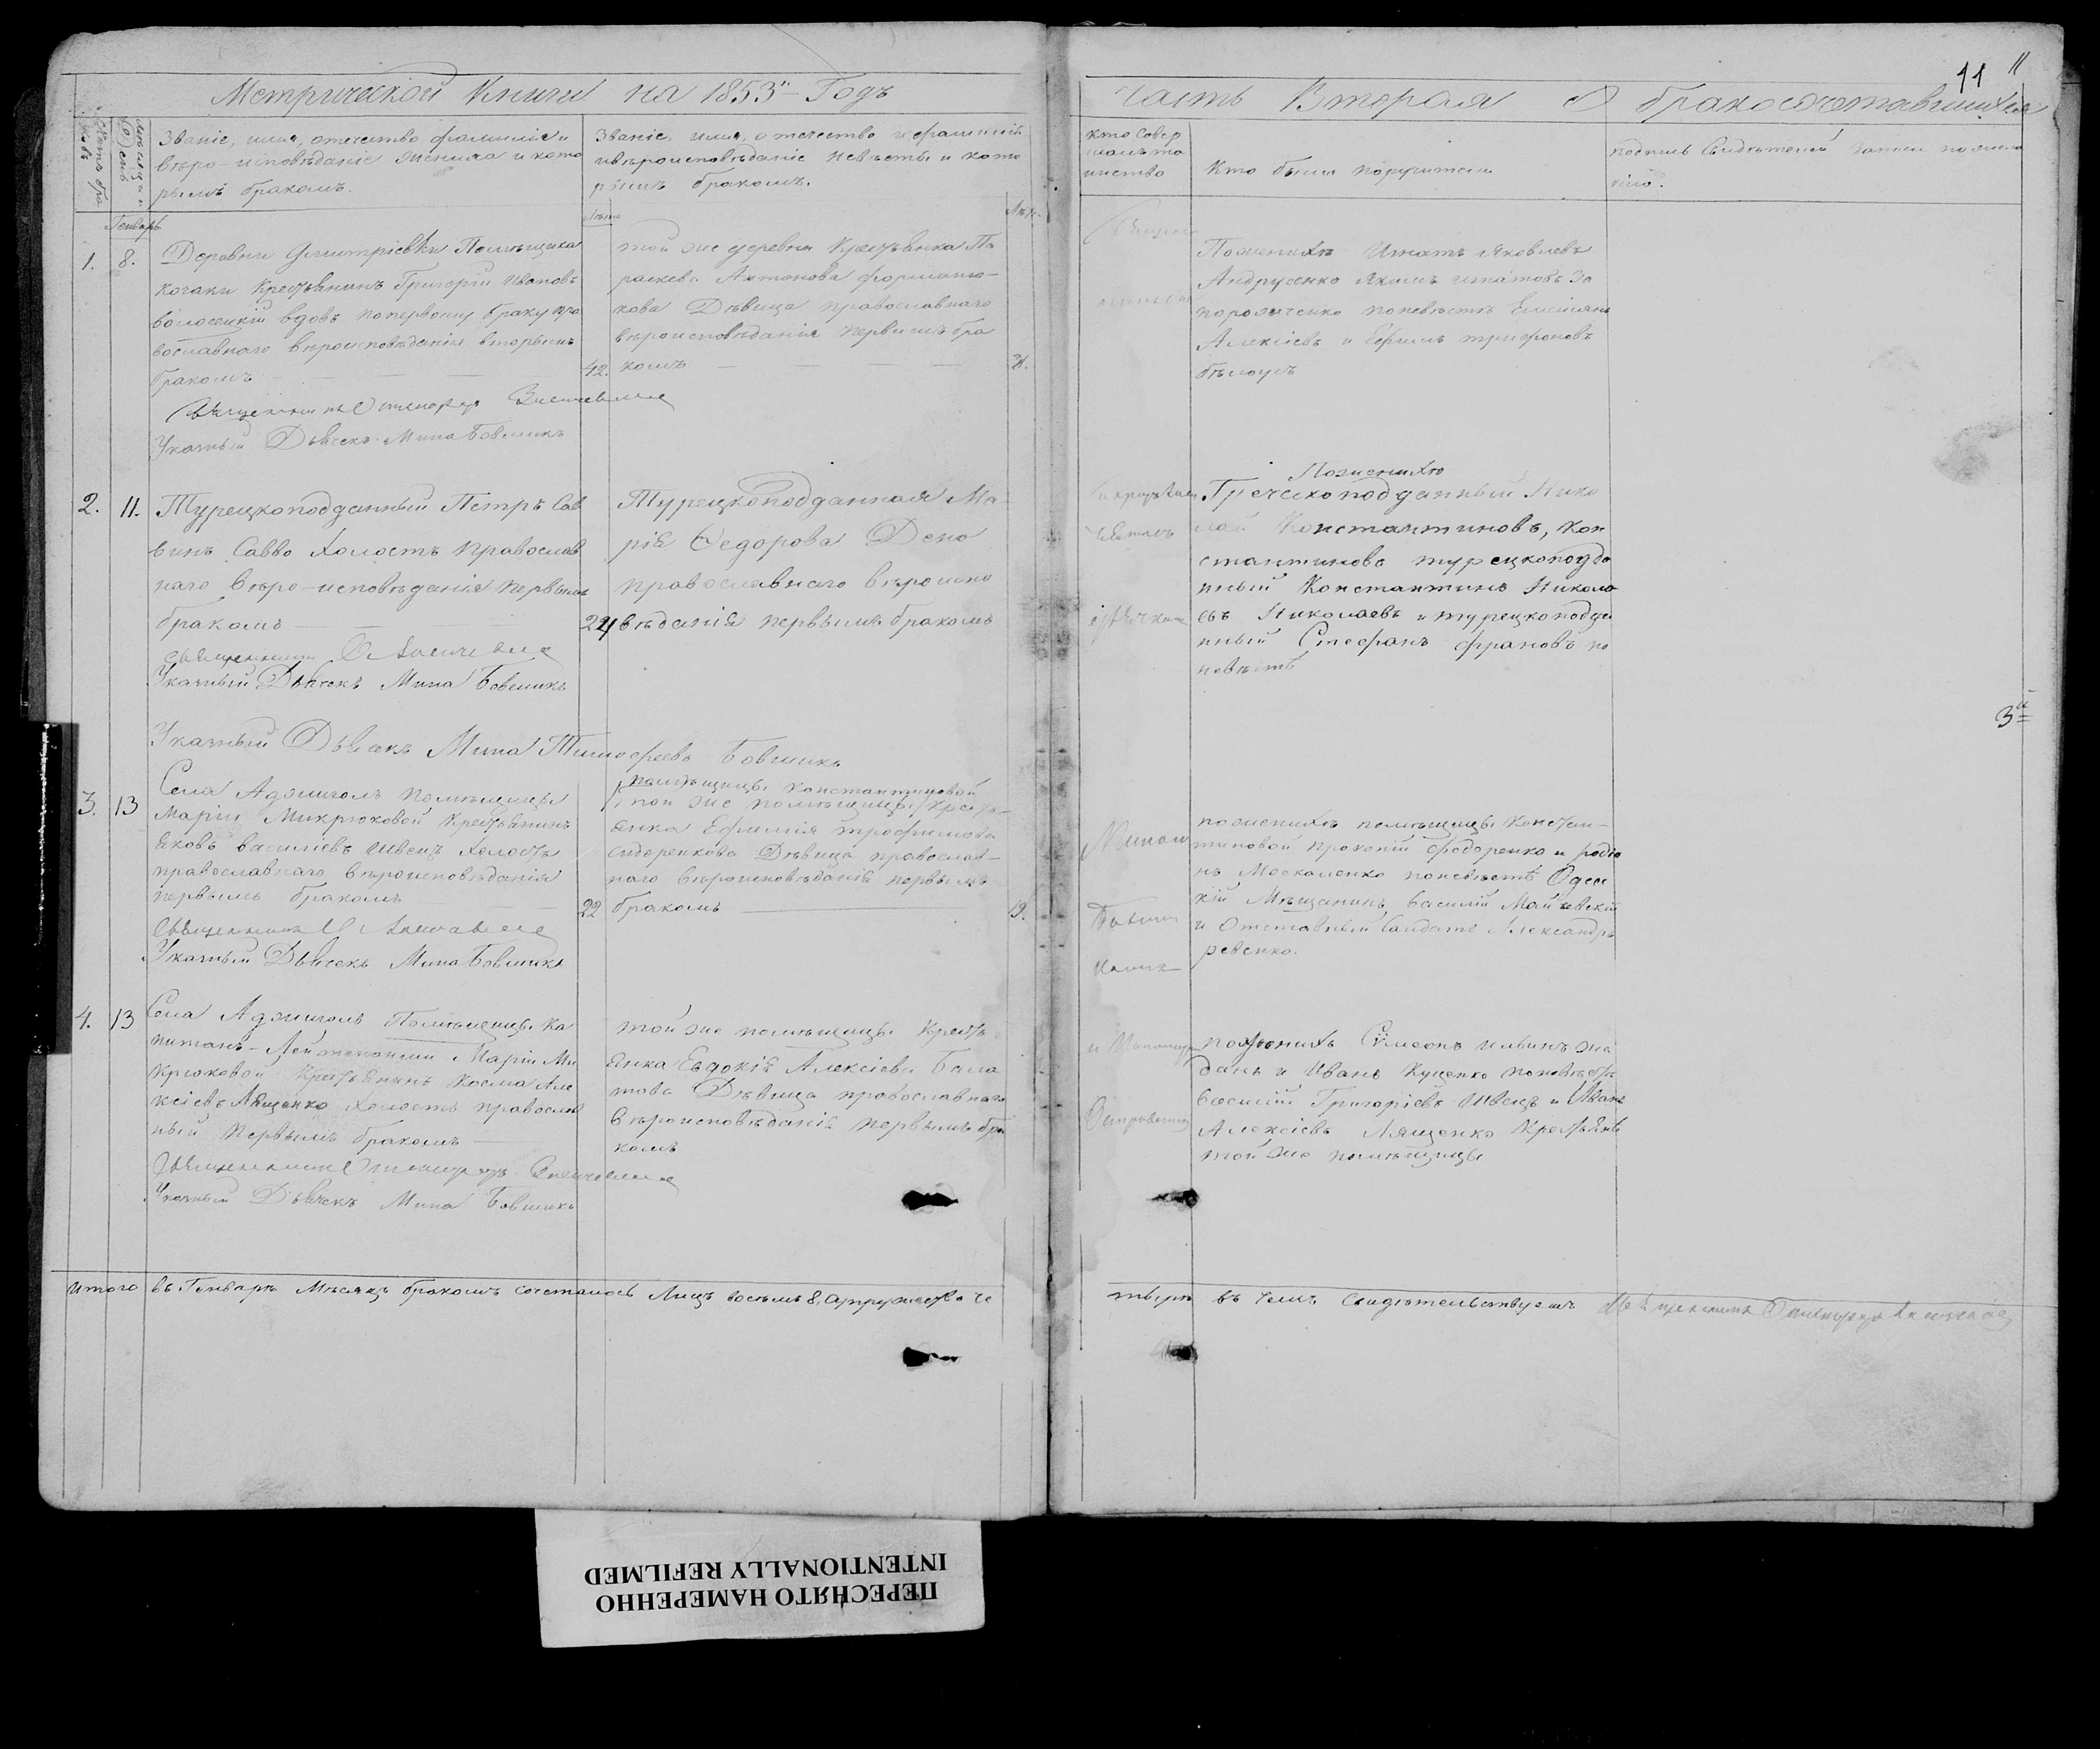 11
11
Метрической Книги на 1853й Годъ
часть Вторая О бракосочетавшихся
Счетъ бра
ковъ
Мѣсяцъ и
День
Званіе, имя, отечество, фамилія и
вѣро-исповѣданіе жениха и кото
рымъ бракомъ.
Лѣта
Званіе, имя, отечество и фамилія
и вѣроисповѣданіе невѣсты и кото
рымъ бракомъ.
Лѣта
кто совер
шалъ та
инство
Кто были поручители
подпись Свидѣтелей записи по жела
нію.
Генварь
1.
8.
Деревни Дмитріевки Помѣщика
Кочаки Крестьянинъ Григорій Ивановъ
Волосецкій вдовъ по первому браку пра
вославнаго вѣроисповѣданія вторымъ
бракомъ
42.
Священникъ
Указный Дьячекъ Мина Бовшикъ
той же деревни Крестьянка Па
раскева Антонова
кова Дѣвица православнаго
вѣроисповѣданія первымъ бра
комъ
Поженихѣ Игнатъ Яковлевъ
Андрусенко Якимъ Игнатовъ За
порожченко поневѣстѣ Емиліянъ
Алексіевъ и Ефимъ Трифоновъ
бѣлоусъ
2.
11.
Турецкоподданный Петръ Сав
винъ Савво Холостъ Православ
наго вѣро-исповѣданія первымъ
бракомъ
24
Священникъ
Указный Дьячекъ Мина Бовшикъ
Турецкоподданная Ма
рія Ѳедорова Дено
православнаго вѣроиспо
вѣданія первымъ бракомъ
Поженихѣ
Греческоподданный Нико
лай Константиновъ, Кон
стантиновъ турецкоподда
нный Константинъ Никола
евъ Николаевъ и турецкоподда
нный Стефанъ Франовъ по
невѣстѣ
3й
Указный Дьячекъ Мина Тимофеевъ Бовшикъ
3.
13
Села Аджиголъ помѣщицы
Маріи Микрюковой Крестьянинъ
Яковъ Василіевъ Швецъ Холостъ
православнаго вѣроисповѣданія
первымъ бракомъ
22
Священникъ
Указный Дьячекъ Мина Бовшикъ
помѣщицы Константиновой
той же помѣщицы Кресть-
янка Ефимія трофимова
Сидоренкова Дѣвица православ-
наго вѣроисповѣданія первымъ
бракомъ
19.
поженихѣ помѣщицы Констан-
тиновой Прокопій Федоренко и Родіо
нъ Москаленко поневѣстѣ Одесс
кій Мѣщанинъ Василій Маневскій
и Отставный Солдатъ Александръ
ревенко.
4.
13
Села Аджиголъ Помѣщицы Ка
питанъ-Лейтенантши Маріи Ми
крюковой Крестьянинъ Косма Але
ксіевъ Лященко Холостъ православ
ный Первымъ бракомъ
Священникъ
Указный Дьячекъ Мина Бовшикъ
той же помѣщицы Кресть
янка Евдокія Алексіева Бала
това Дѣвица православнаго
вѣроисповѣданія первымъ бра
комъ
поженихѣ Симеонъ Ильинъ Жа
данъ и Иванъ Куценко поневѣстѣ
Василій Григоріевъ Швецъ и Иванъ
Алексіевъ Лященко Крестьяне
той же помѣщицы
Итого въ Генварѣ Мѣсяцѣ бракомъ сочеталось Лицъ восемь 8, а супружествъ че
тыре въ чемъ Свидѣтельствуемъ Священникъ
ПЕРЕСНЯТО НАМЕРЕННО
INTENTIONALLY REFILMED